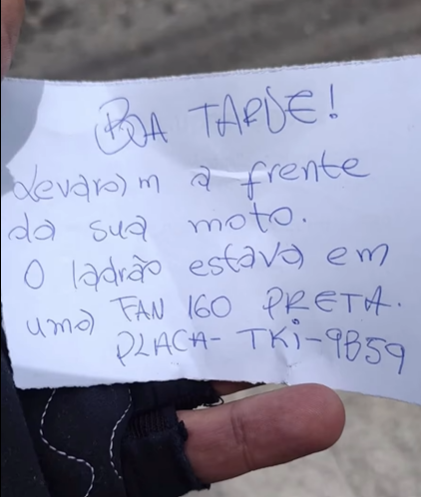 BOA TARDE!
Levaram a frente
da sua moto.
O ladrão estava em
uma FAN 160 PRETA.
PLACA- TKi-9B59